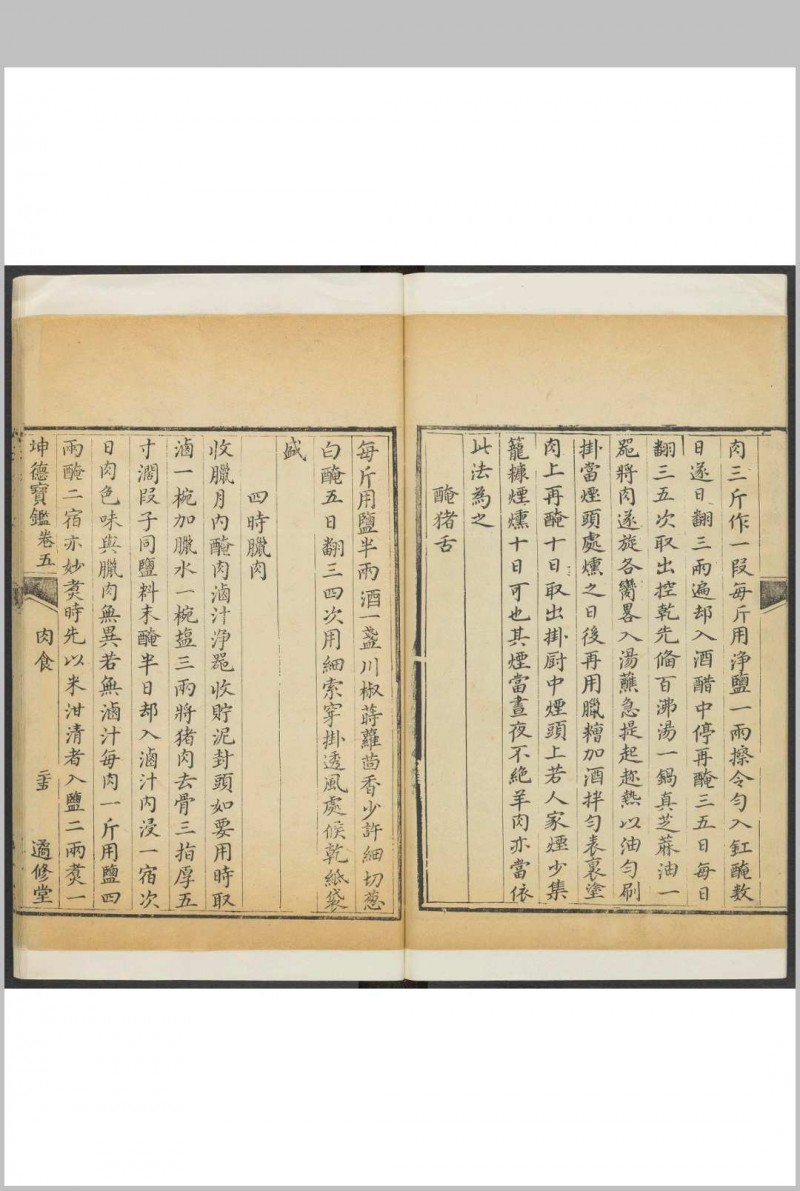 肉三斤作一段每斤用净鹽一兩擦令勻入缸醃数
日逐日翻三兩遍却入酒醋中停再醃三五日每日
翻三五次取出控乾先俻百沸湯一鍋真芝蔴油一
噐將肉逐旋各臠畧入湯蘸急提起趂熱以油勻刷
掛當煙頭處燻之日後再用臘糟加酒拌勻表裏塗
肉上再醃十日取出掛厨中煙頭上若人家煙少集
籠糠煙燻十日可也其煙當晝夜不絶羊肉亦當依
此法為之
醃猪舌
每斤用鹽半兩酒一盞川椒蒔蘿茴香少許細切葱
白醃五日翻三四次用細索穿掛透風處候乾紙袋
盛
四時臘肉
收臘月內醃肉滷汁净噐收貯泥封頭如要用時取
滷一椀加臘水一椀塩三兩將猪肉去骨三指厚五
寸濶段子同鹽料末醃半日却入滷汁內浸一宿次
日肉色味與臘肉無異若無滷汁每肉一斤用鹽四
兩醃二宿亦妙煑時先以米泔清者入鹽二兩煑一
坤德寶鑑卷五 肉食 遹修堂